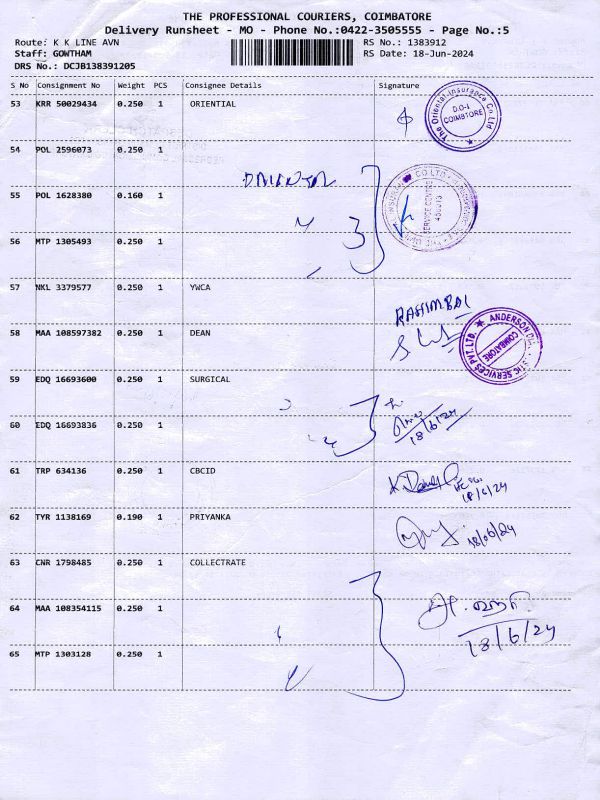 THE PROFESSIONAL COURIERS, COIMBATORE
Delivery Runsheet - MO - Phone No.:0422-3505555 - Page No.:5
Route: K K LINE AVN RS No.: 1383912
Staff: GOWTHAM RS Date: 18-Jun-2024
DRS No.: DCJB138391205
S No Consignment No Weight PCS Consignee Details Signature
53 KRR 50029434 0.250 1 ORIENTIAL
The Oriental Insurance Co. Ltd
D.O-I
COIMBATORE
54 POL 2596073 0.250 1
55 POL 1628380 0.160 1
SERVICE CENTRE
3
56 MTP 1305493 0.250 1
57 NKL 3379577 0.250 1 YWCA
RAHIMBAI
58 MAA 108597382 0.250 1 DEAN
ANDERSON
COIMBATORE
SERVICES PVT. LTD.
59 EDQ 16693600 0.250 1 SURGICAL
60 EDQ 16693836 0.250 1
18/6/24
61 TRP 634136 0.250 1 CBCID
18/6/24
62 TYR 1138169 0.190 1 PRIYANKA
18/06/24
63 CNR 1798485 0.250 1 COLLECTRATE
64 MAA 108354115 0.250 1
18/6/24
65 MTP 1303128 0.250 1